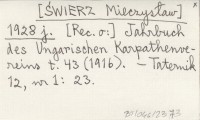 [ŚWIERZ Mieczysław]
1928 j. [Rec. o:] Jahrbuch
des Ungarischen Karpathenve-
reins t. 43 (1916). – Taternik
12, nr 1: 23.